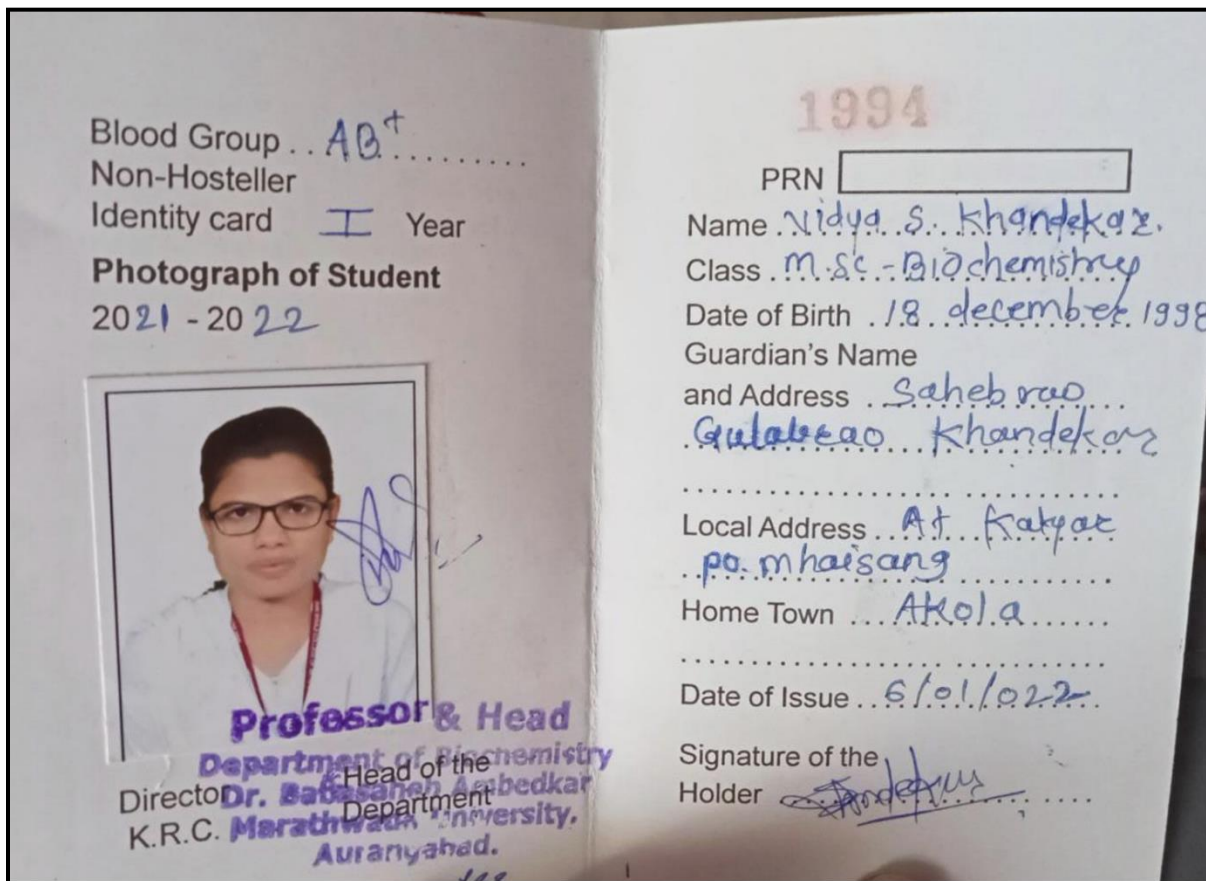 Blood Group .. AB+ ..........
Non-Hosteller
Identity card I Year
Photograph of Student
2021 - 2022
Professor & Head
Department of Biochemistry
Head of the
Director
Dr. Babasaheb Ambedkar
Department
K.R.C.
Marathwada University,
Aurangabad.
1994
PRN
Name . Vidya S. Khandekar.
Class . M.Sc - Biochemistry
Date of Birth . 18 december 1998
Guardian's Name
and Address .. Sahebrao
Gulabrao Khandekar
Local Address .. At Katyar
po. mhaisang
Home Town ... Akola
Date of Issue .. 6/01/022
Signature of the
Holder